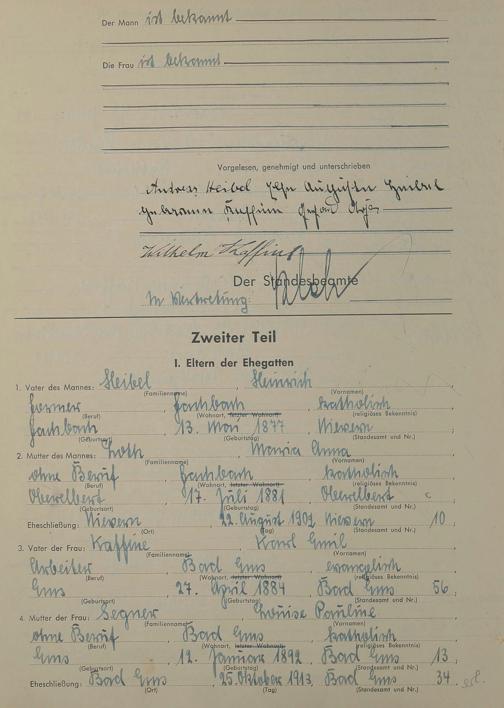 Der Mann ist bekannt
Die Frau ist bekannt
Vorgelesen, genehmigt und unterschrieben
Andreas Heibel
geborene Kaffine
Wilhelm Kaffine
Der Standesbeamte
In Vertretung:
Zweiter Teil
I. Eltern der Ehegatten
1. Vater des Mannes: Heibel, Heinrich
(Familienname) (Vornamen)
Former, Fachbach, katholisch
(Beruf) (Wohnort, letzter Wohnort) (religiöses Bekenntnis)
Fachbach 13. Mai 1877 Nievern
(Geburtsort) (Geburtstag) (Standesamt und Nr.)
2. Mutter des Mannes: Maria Anna
(Familienname) (Vornamen)
ohne Beruf, Fachbach, katholisch
(Beruf) (Wohnort, letzter Wohnort) (religiöses Bekenntnis)
Oberelbert 17. Juli 1881 Oberelbert
(Geburtsort) (Geburtstag) (Standesamt und Nr.)
Eheschließung: Nievern 22. August 1902 Nievern 10
(Ort) (Tag) (Standesamt und Nr.)
3. Vater der Frau: Kaffine Karl Emil
(Familienname) (Vornamen)
Arbeiter, Bad Ems, evanglisch
(Beruf) (Wohnort, letzter Wohnort) (religiöses Bekenntnis)
Ems 27. April 1884 Bad Ems 56
(Geburtsort) (Geburtstag) (Standesamt und Nr.)
4. Mutter der Frau: Segner Louise Pauline
(Familienname) (Vornamen)
ohne Beruf, Bad Ems, katholisch
(Beruf) (Wohnort, letzter Wohnort) (religiöses Bekenntnis)
Ems 12. Januar 1892 Bad Ems 13
(Geburtsort) (Geburtstag) (Standesamt und Nr.)
Eheschließung: Bad Ems 25. Oktober 1913 Bad Ems 34
(Ort) (Tag) (Standesamt und Nr.)